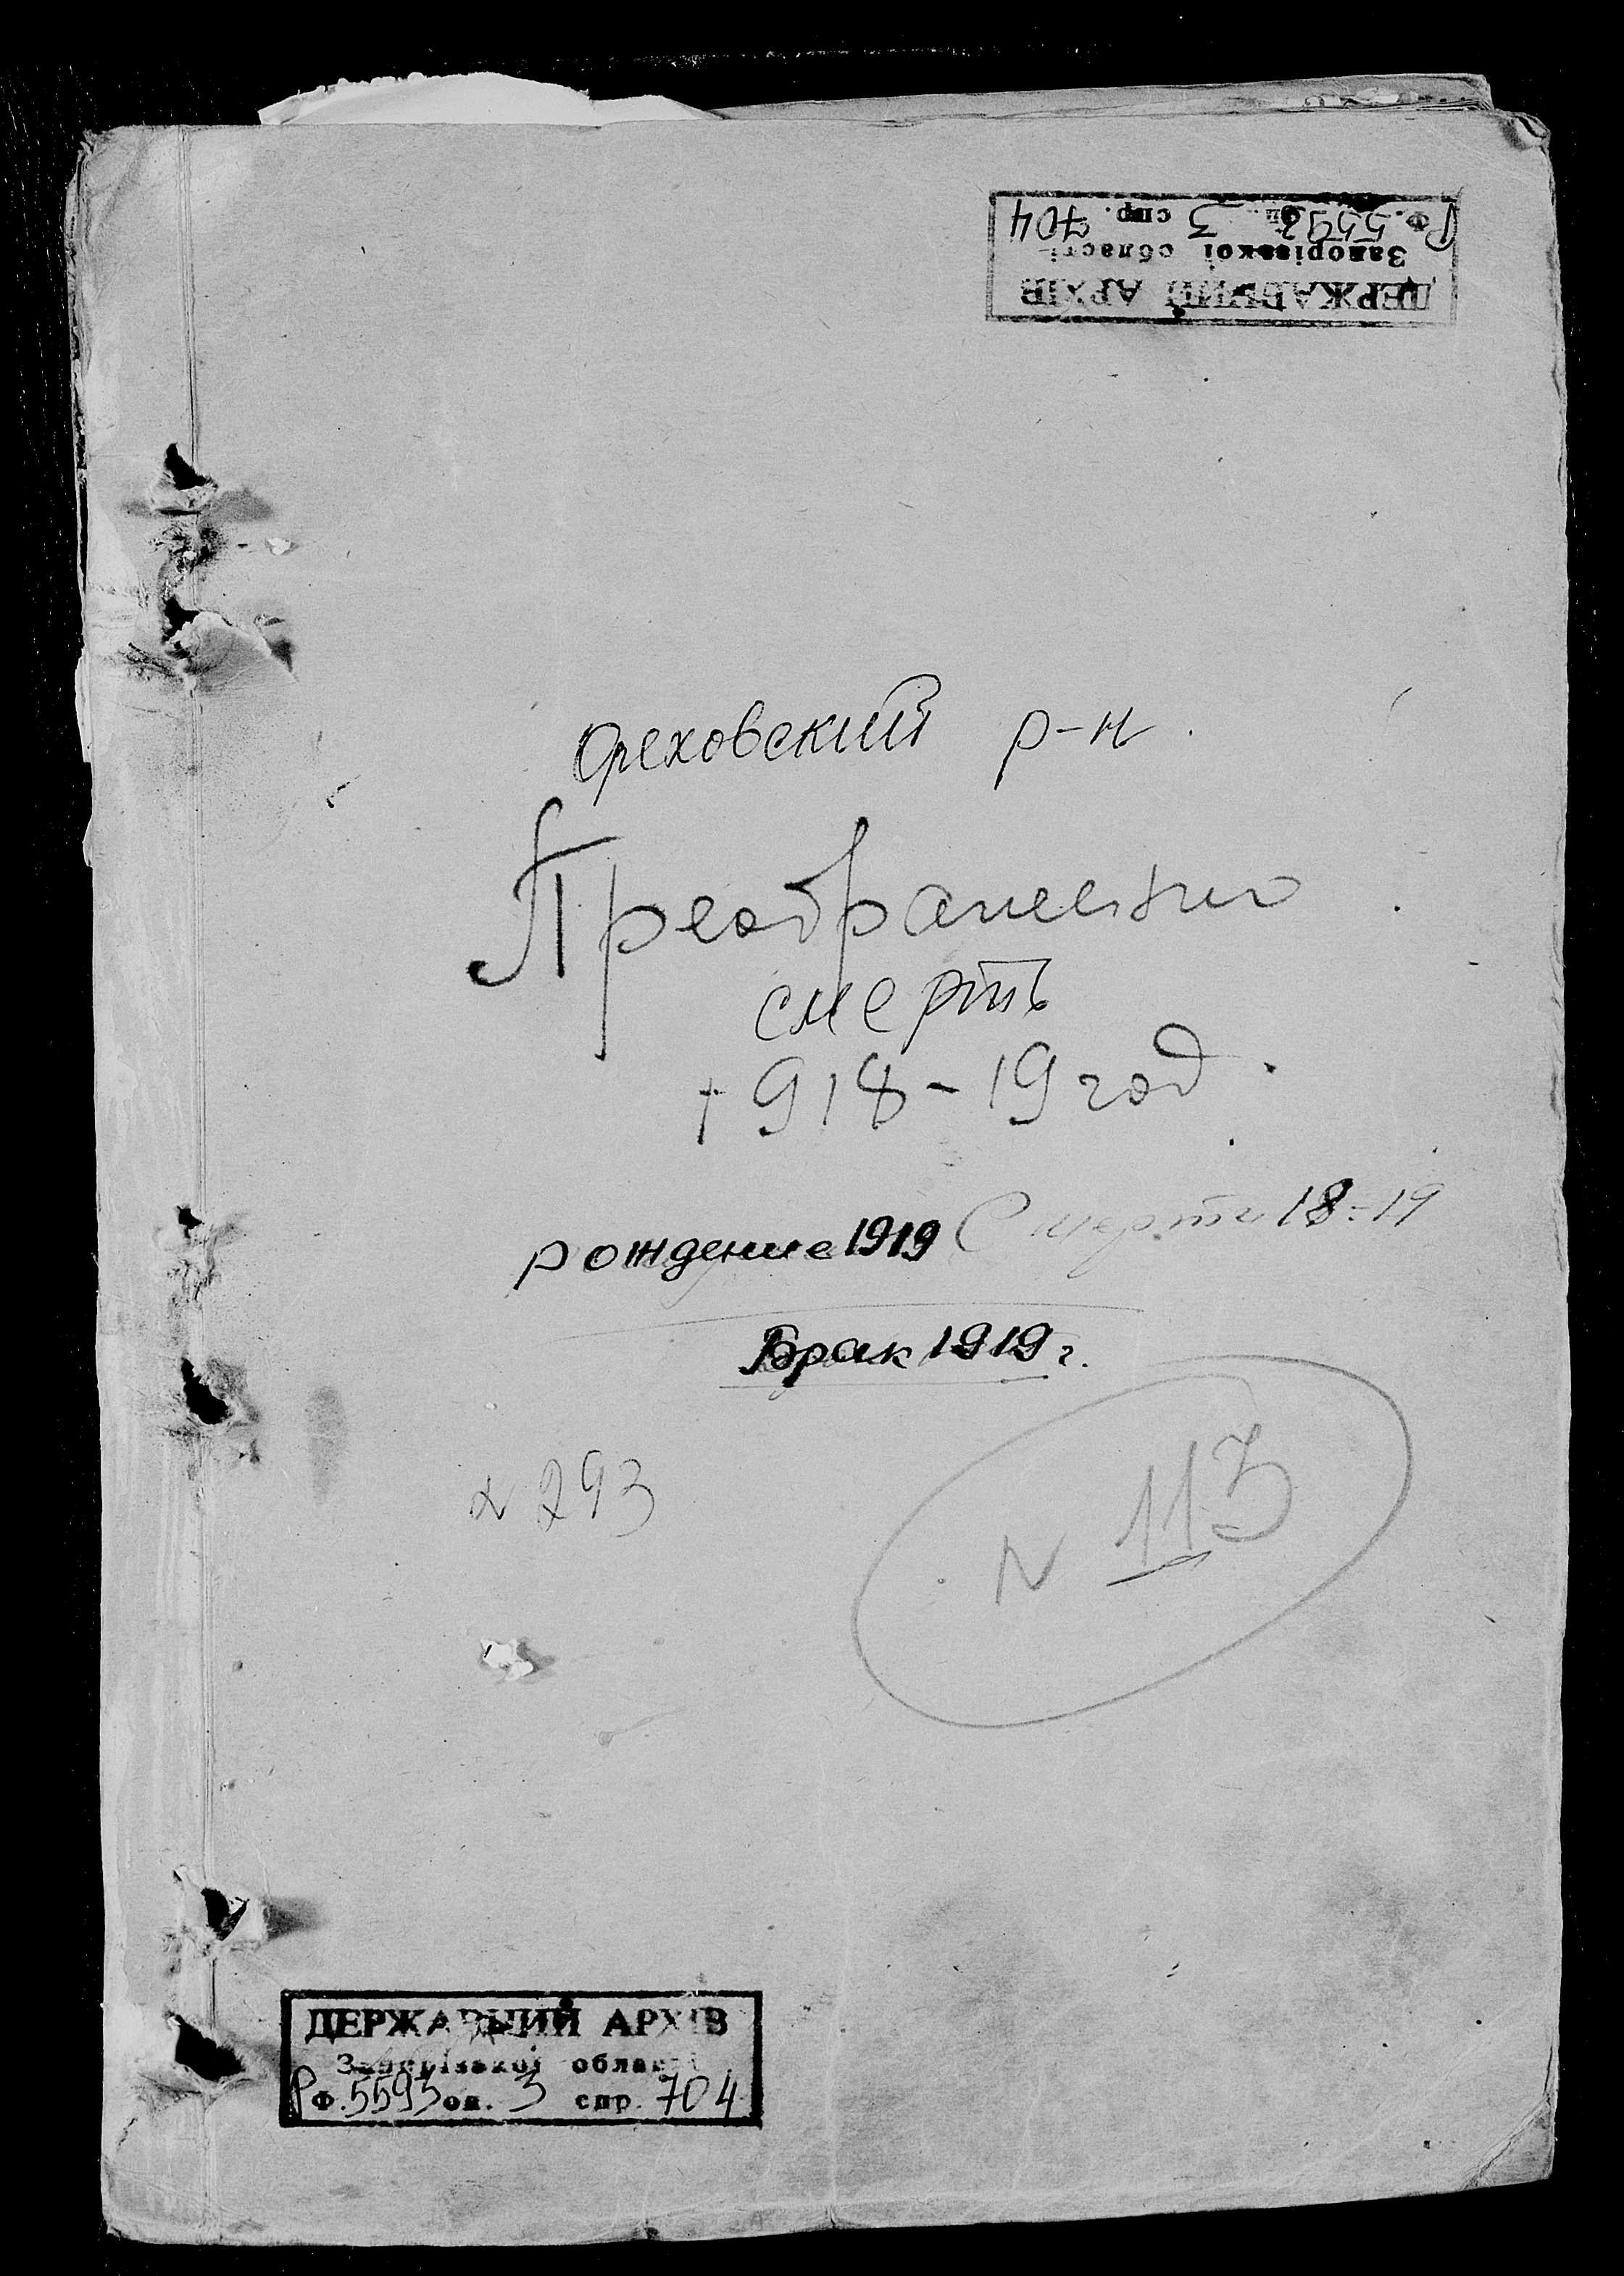 ДЕРЖАВНИЙ АРХІВ
Запорізької області
Р Ф. 5593 оп. 3 спр. 704
Ореховский р-н.
Преображенка
смерть
1918-19 год.
рождение 1919 Смерть 18-19
Брак 1919 г.
N 293
N 113
ДЕРЖАВНИЙ АРХІВ
Запорізької області
Р Ф. 5593 оп. 3 спр. 704